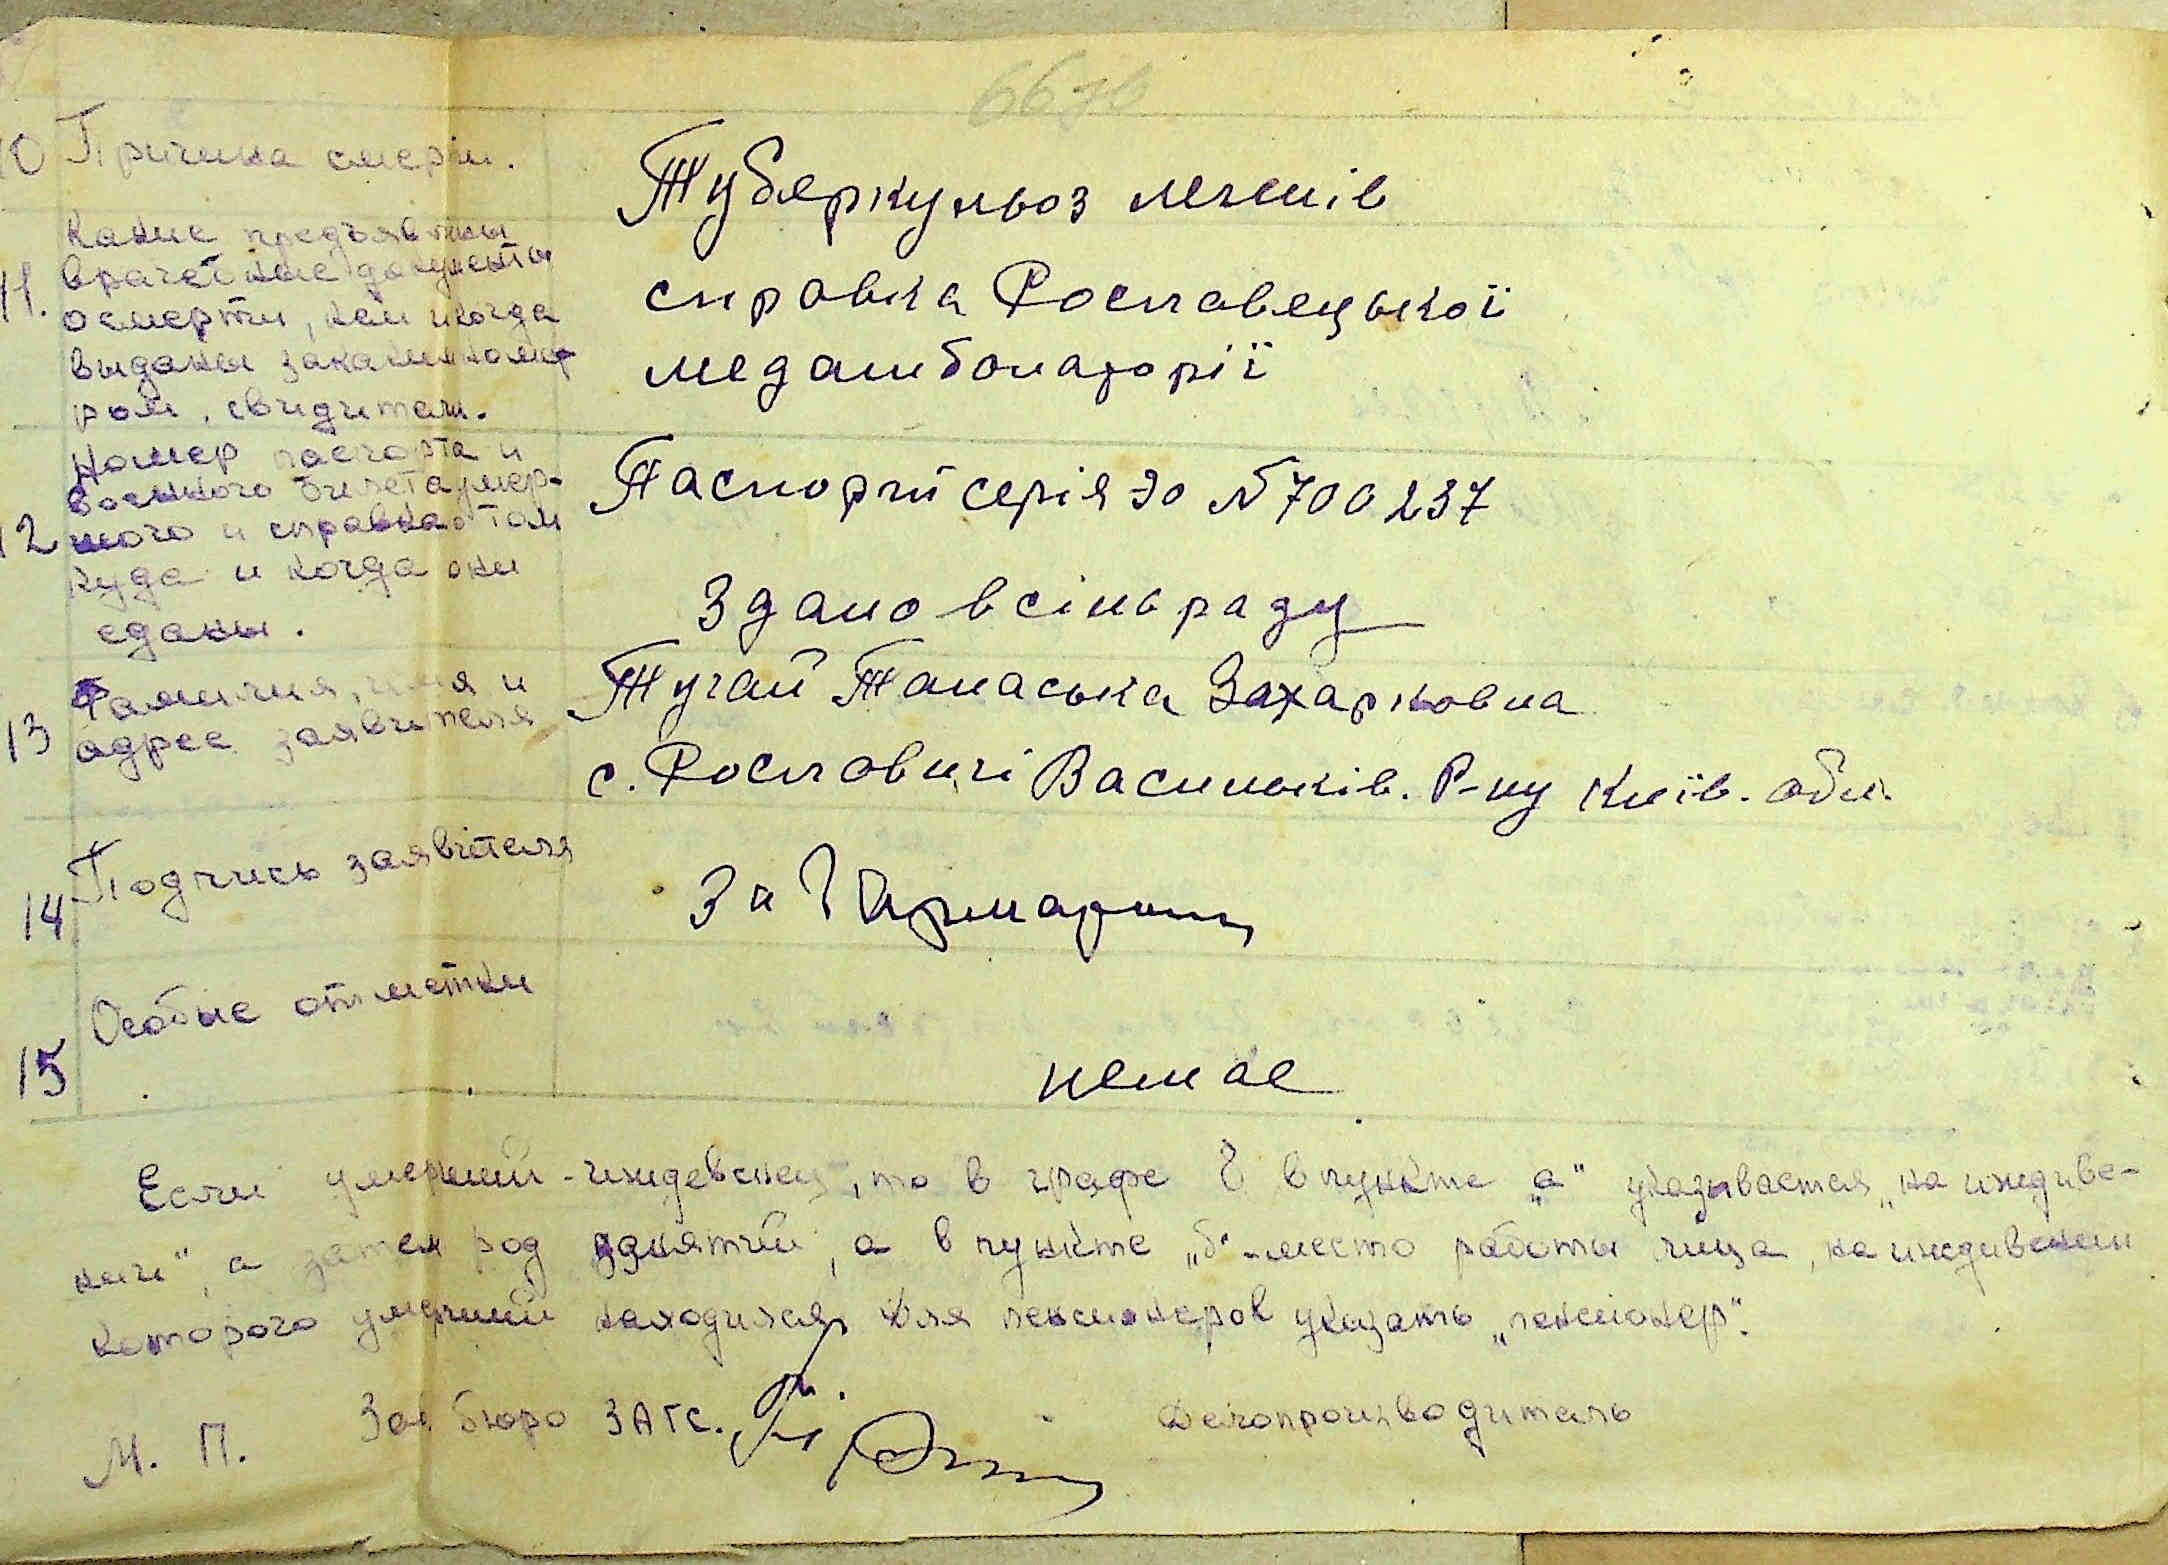 10 Причина смерти.
Тубяркульоз легенів
11. Какие предъявлены
врачебные документы
о смерти, кем и когда
выданы за каким номе-
ром, свидители.
справка Рославецької
медамболаторії
12 Номер паспорта и
военного билета умер-
шого и справка о том
куда и когда они
сданы.
Паспорт серія ЭО № 700237
Здано в сільраду
13 Фамилия, имя и
адрес заявителя
Тугай Танаська Захарковна
с. Рославичі Васильків. Р-ну Київ. обл.
14 Подпись заявителя
За
15 Особые отметки
немае
Если умерший - иждевенец, то в графе 8 в пункте „а" указывается „на иждиве-
нии", а затем род занятий, а в пункте „б" - место работы лица, на иждивении
которого умерший находился, для пенсионеров указать „пенсионер".
М. П. Зав бюро ЗАГС. Делопроизводитель